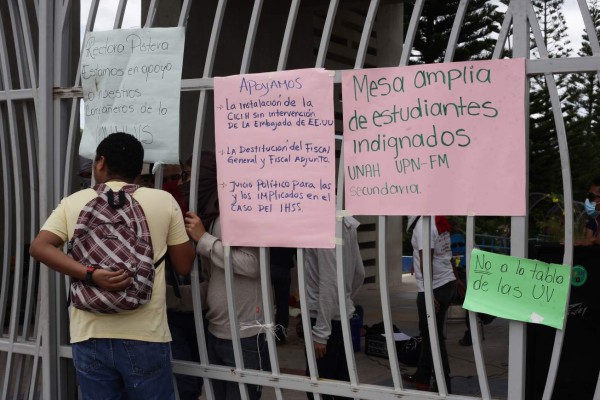 Rectora Patera
Estamos en apoyo
de nuestros
compañeros de la
Apoyamos
- La instalación de la
CICIH sin intervención
DE LA Embajada DE EE.UU
- La Destitución del Fiscal
General y Fiscal ADJUNTO.
- Juicio Político para las
y los implicados en el
CASO DEL IHSS
Mesa amplia
de estudiantes
indignados
UNAH UPN-FM
secundaria.
No a la tabla
de las UV